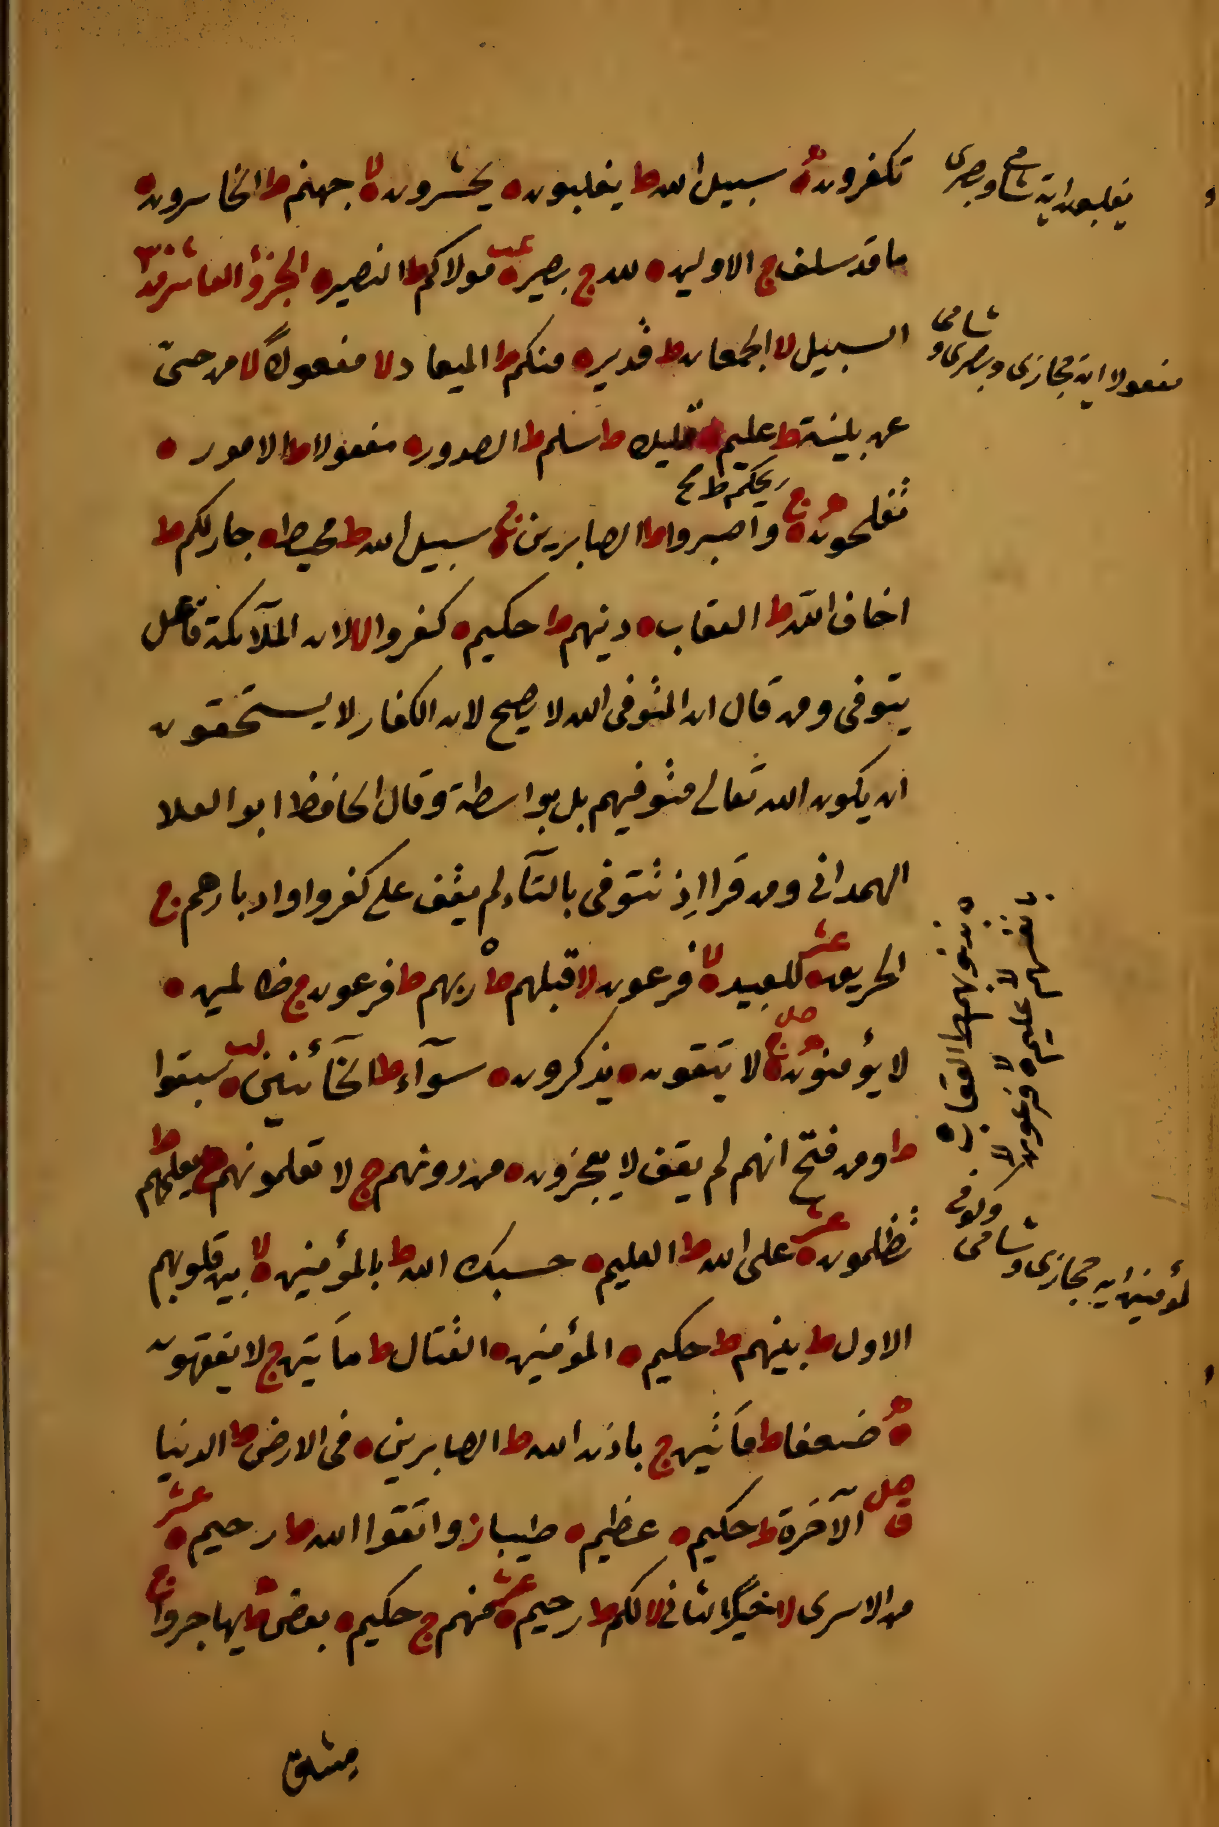 تكفرون ه سبيل الله ط يغلبون ه يحشرون ه لا جهنم ط الخاسرون ه
ما قد سلف ج الاولين ه لله ج بصير ه عب مولاكم ط النصير ه الجزؤ العاشر
السبيل لا الجمعان ط قدير ه منكم ط الميعاد لا مفعولاً لا من حىّ
عن بينة ط عليم ه قليلا ط سلم ط الصدور ه مفعولا ط الامور ه
ريحكم ط صح
تفلحون ه ج واصبروا ط الصابرين ه ج سبيل الله ط محيط ه جار لكم ط
اخاف الله ط العقاب ه دينهم ط حكيم ه كفروا لا لان الملآئكة فاعل
يتوفى ومن قال ان المتوفى الله لا يصح لان الكفار لا يستحقون
ان يكون الله تعالى متوفيهم بل بواسطة وقال الحافظ ابو العلا
الهمدانى ومن قرا اذ تتوفى بالتآء لم يقف على كفروا وادبارهم ج
الحريق ه عشر للعبيد ه لا فرعون لا قبلهم ط ربهم ط فرعون ج ظالمين ه
لا يؤمنون ه ج صل لا يتقون ه يذكرون ه سوآء ط الخآئنين ه لب سبقوا
ط ومن فتح انهم لم يقف لا يعجزون ه من دونهم ج لا تعلمونهم ج يعلمهم ط
تظلمون ه عشر على الله ط العليم ه حسبك الله ط بالمؤمنين ه لا بين قلوبهم
الاول ط بينهم ط حكيم ه المؤمنين ه القتال ط مأتين ج لا يفقهون
ه ضعفا ط مأتين ج باذن الله ط الصابرين ه فى الارض ط الدنيا
ق صل الآخرة ط حكيم ه عظيم ه طيبا ز واتقوا الله ط رحيم ه عشر
من الاسرى لا خيرًا الثانى لا لكم ط رحيم ه عشر منهم ج حكيم ه بعض ط يهاجروا ج
يغلبون اية شامى وبصرى
مفعولا اية حجازى وبصرى وشامى
ه بذنوبهم ط العقاب ه
لمؤمنين اية حجازى وشامى وكوفى